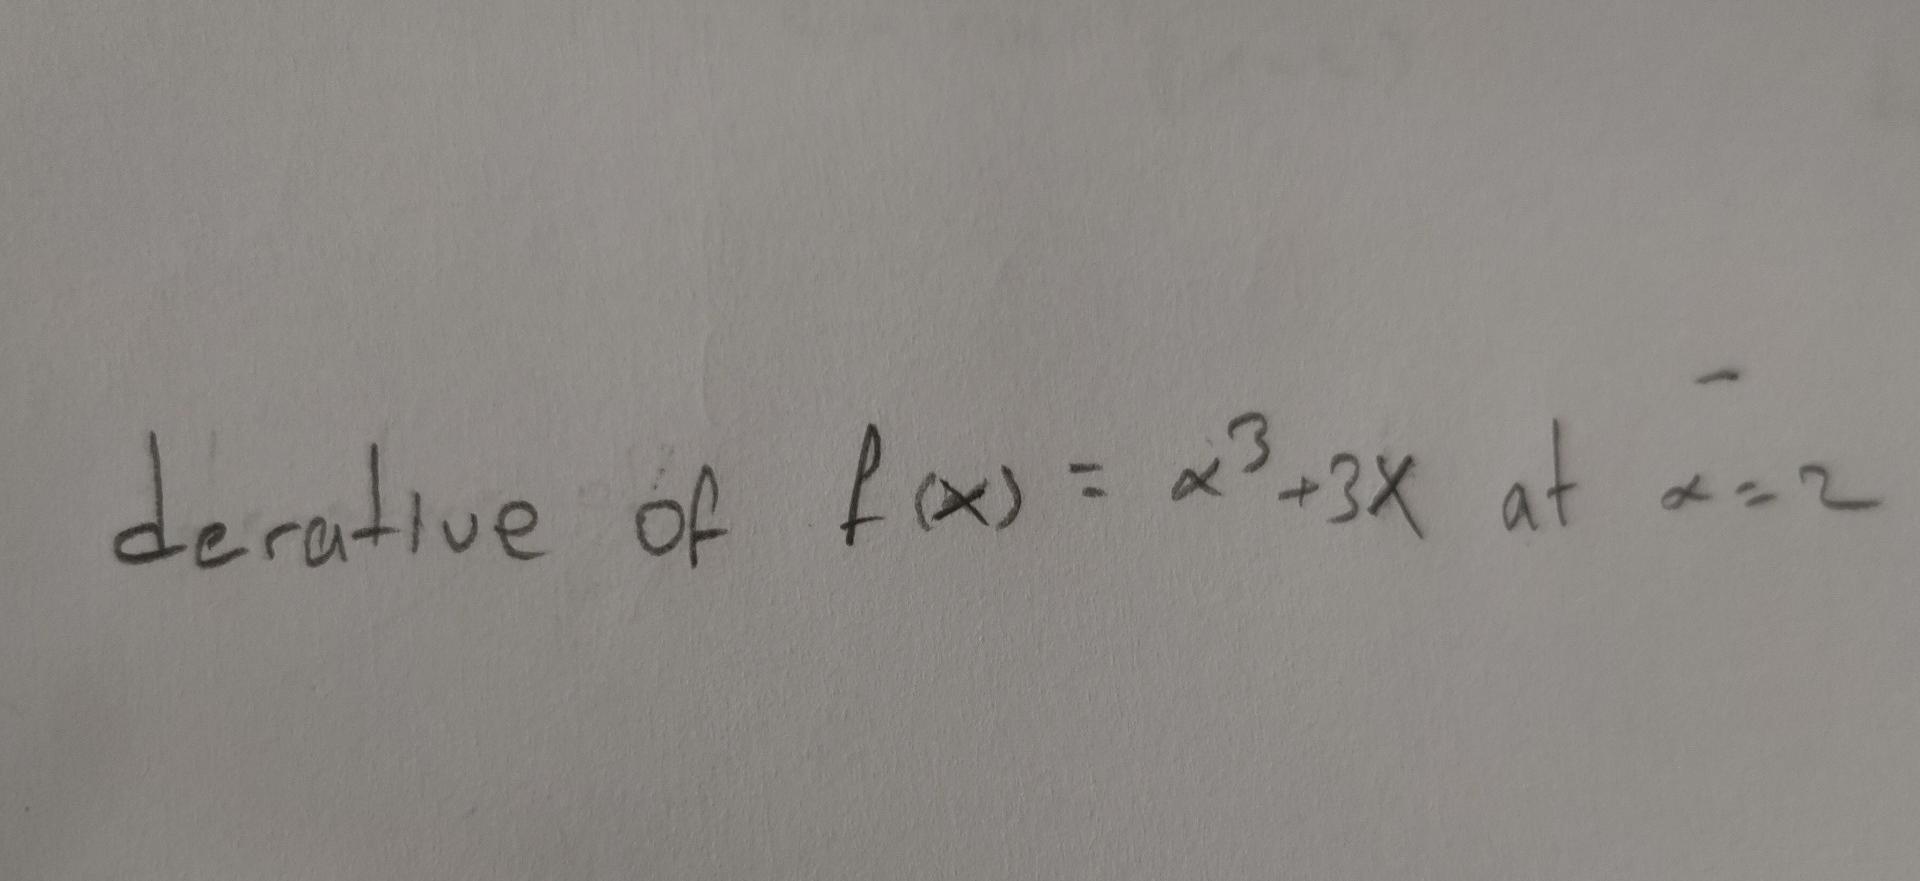 derative of f(x) = x³+3x at x=2